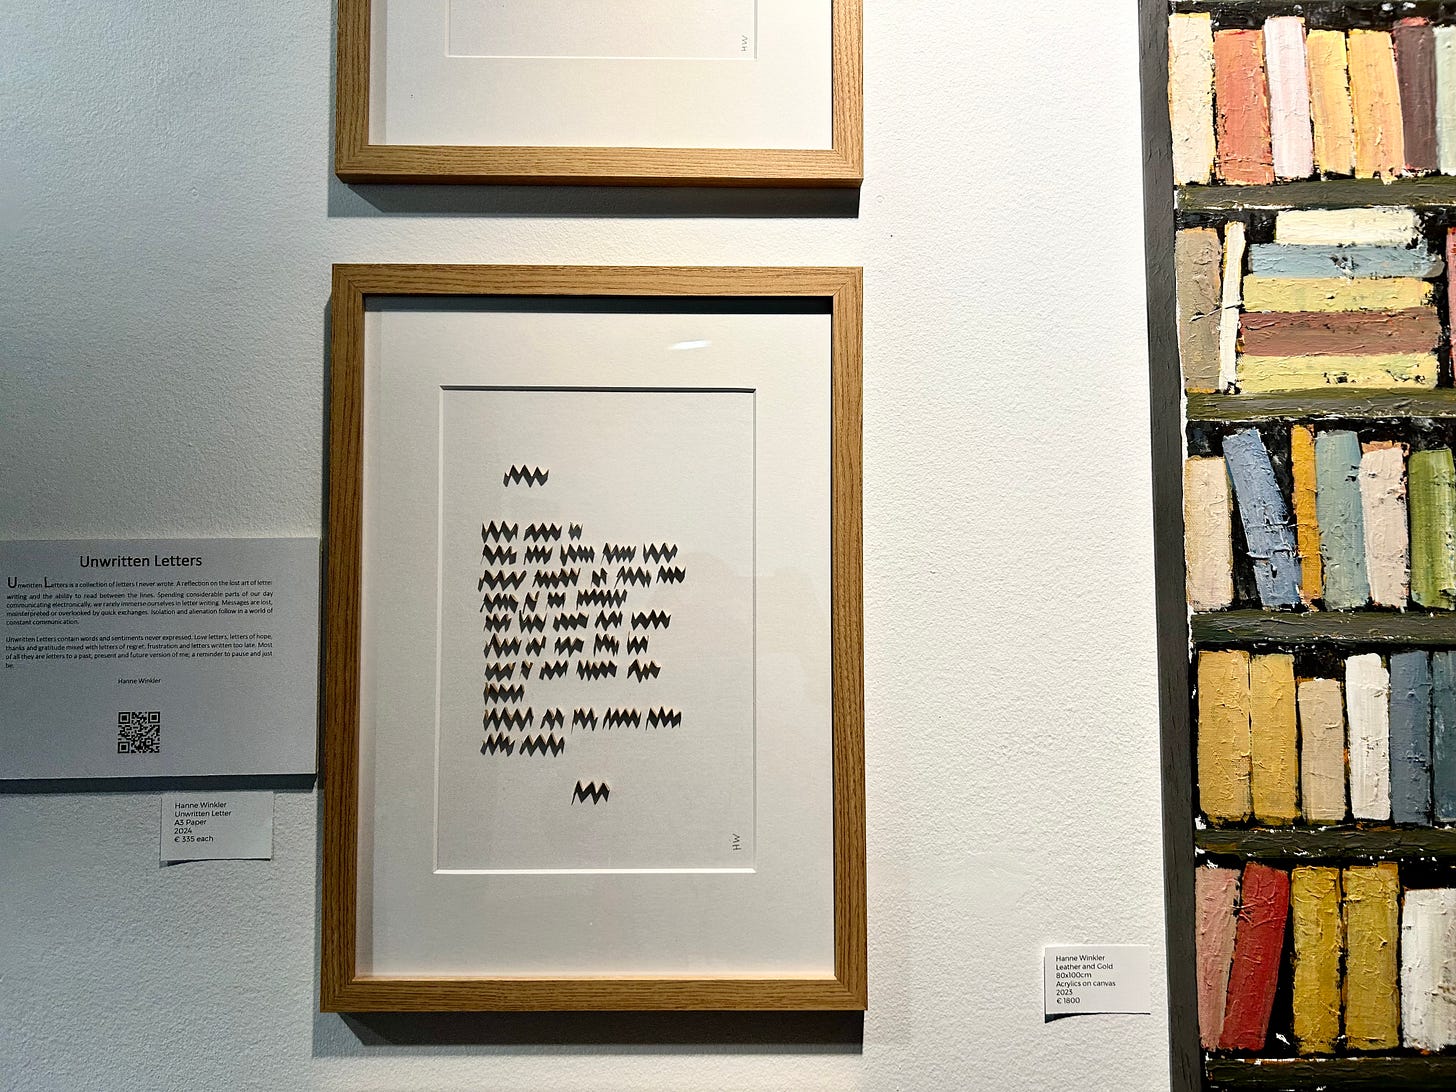 Unwritten Letters
Unwritten Letters is a collection of letters I never wrote. A reflection on the lost art of letter
writing and the ability to read between the lines. Spending considerable parts of our day
communicating electronically, we rarely immerse ourselves in letter writing. Messages are lost,
misinterpreted or overlooked by quick exchanges. Isolation and alienation follow in a world of
constant communication.
Unwritten Letters contain words and sentiments never expressed. Love letters, letters of hope,
thanks and gratitude mixed with letters of regret, frustration and letters written too late. Most
of all they are letters to a past, present and future version of me, a reminder to pause and just
be.
Hanne Winkler
Hanne Winkler
Unwritten Letter
A3 Paper
2024
€ 335 each
HW
HW
Hanne Winkler
Leather and Gold
80x100cm
Acrylics on canvas
2023
€ 1800